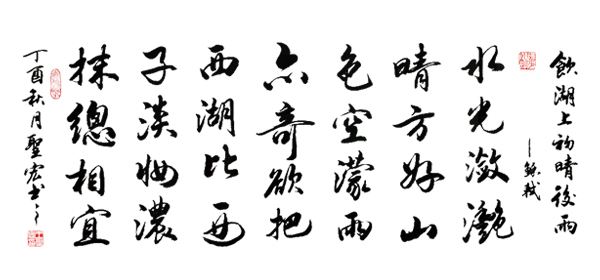 飲湖上初晴後雨
蘇軾
水光潋灔
晴方好山
色空濛雨
亦奇欲把
西湖比西
子淡妝濃
抹總相宜
丁酉秋月聖宏書